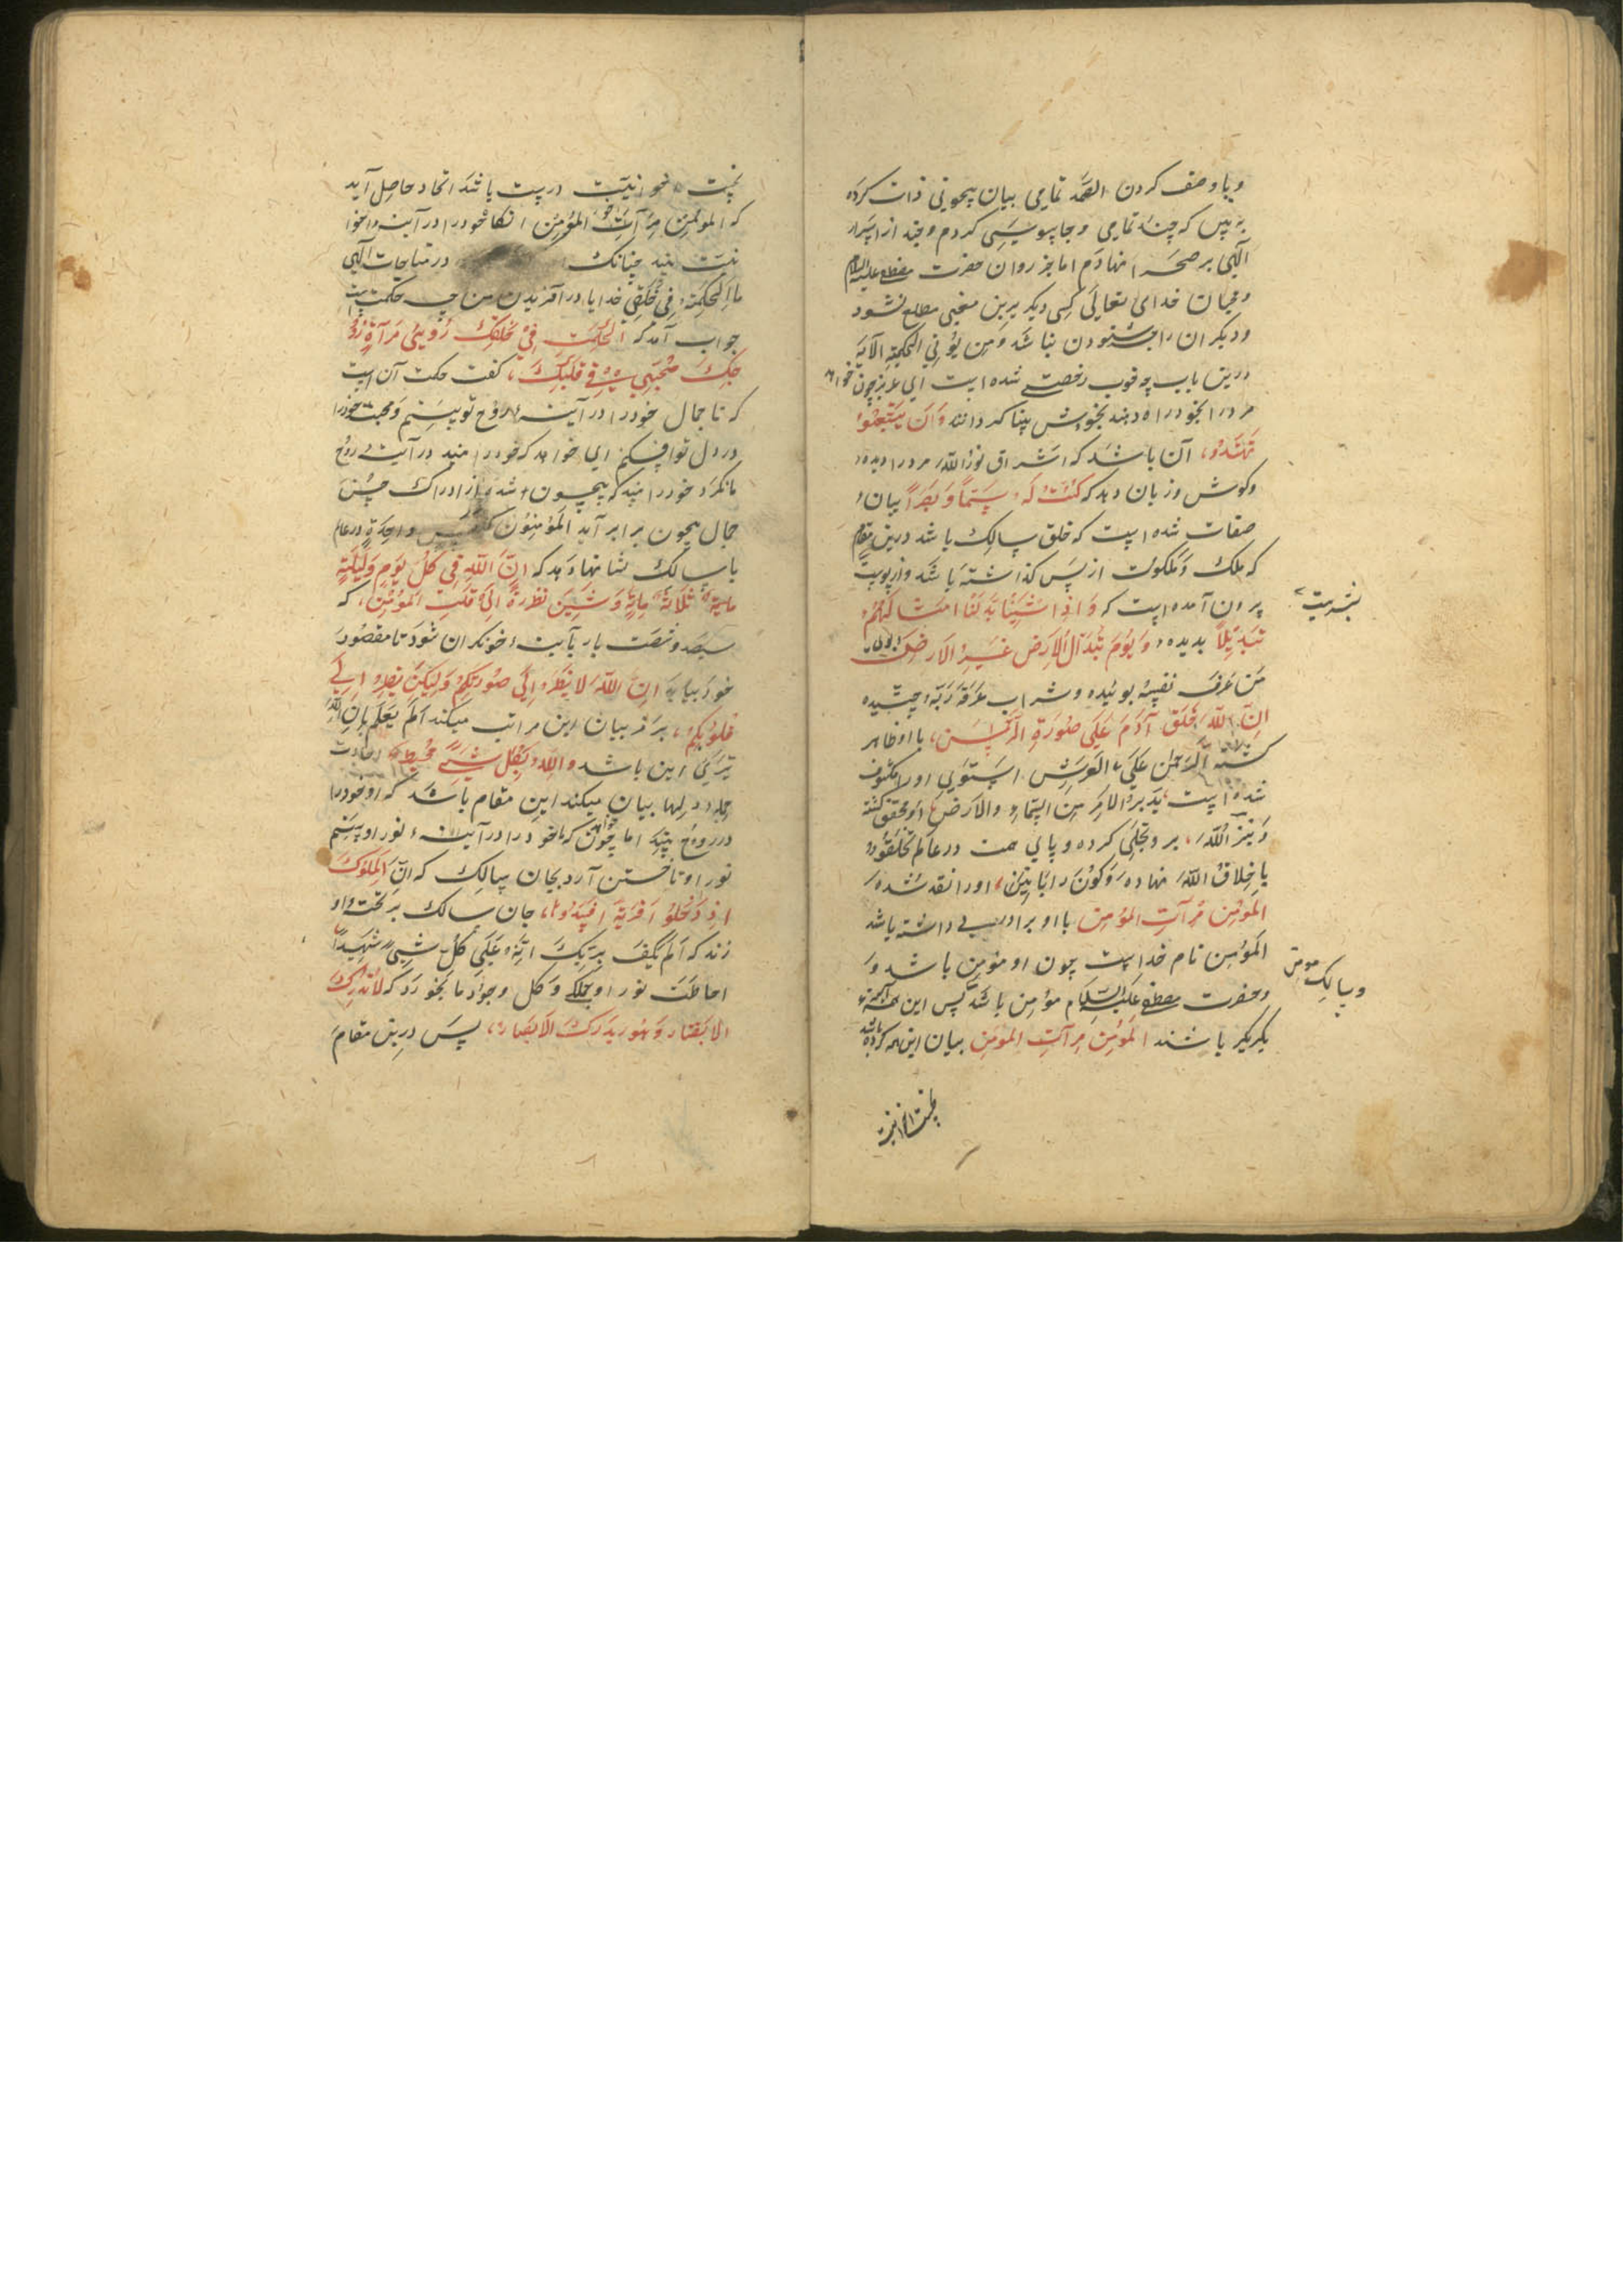 وبا وصف کردن الصمد تمامی بیان بیچونی ذات کرده
به بین که چند تمامی و جاسوسی کردم و چند از اسرار
الهی بر صحرا نهادم اما بجز روان حضرت مصطفی علیه السلام
خدای تعالی کسی دیگر برین معنی مطلع نشود
ودیگران را جز شنودن نباشد ومن یؤتی الحکمة الآیة
درین باب چه خوب رخصتی شده است ای عزیز چون خواهد
مرد را بخود راه دهند بخودش بینا کردانند وان یتبعوا
تهتدوا آن باشد که اشراق نور الله مرد را دیده
وکوش وزبان دهد که کنت له سمعا وبصرا بیان
صفات شده است که خلق سالک باشد درین مقام
که ملک وملکوت از پس کذاشته باشد واز پوست
بشریت
برون آمده است که واذا شئنا بدلنا امثالهم
تبدیلا بدیده ویوم تبدل الارض غیر الارض بوی
من عرف نفسه بوئیده وشراب عرف ربه چشیده
ان الله خلق آدم علی صورة الرحمن با او ظاهر
کشته الرحمن علی العرش استوی او را مکشوف
شده است یدبر الامر من السماء والارض او محقق کشته
وینز الله بر وتجلی کرده وپای همت در عالم تخلقوا
باخلاق الله نهاده وکونوا ربانیین او را نقد شده
المؤمن مرآت المؤمن با او برادری داشته باشد
المؤمن نام خداست چون او مؤمن باشد و
وسالک مومن
وحضرت مصطفی علیه السلام مؤمن باشد پس این همه آئینه
یکدیکر باشند المؤمن مرآت المؤمن بیان این همه کرده باشد
درست باشد اتحاد حاصل آید
که المؤمن مرآت المؤمن انکاه خود را در آینه
بیند چنانک در مناجات الهی
ما الحکمة فی خلقی خدایا در آفریدن من چه حکمت است
جواب آمد که الحکمت فی خلقک رؤیتی فی مرآة رو
حک محبتی فی قلبک کفت حکمت آن است
که تا جمال خود را در آینه روح تو بینم ومحبت خود را
در دل تو افکنم ای خواهد که خود را بیند در آینه روح
ما نکرد خود را بیند که بیچون شده از ادراک حسن
جمال بیچون برابر آید المؤمنون کنفس واحدة در عالم
با سالک نشانها دهد که ان الله فی کل یوم ولیلة
ثلاثة مایة وستین نظرة الی قلب المؤمن که
سیصد وشصت بار بآینه خود نکران شود تا مقصود
خود بیابد ان الله لا ینظر الی صورکم ولکن ینظر الی
قلوبکم برمز بیان این مراتب میکند الم یعلم بان الله
یری این باشد والله بکل شیء محیط
جمله دلها بیان میکند این مقام باشد که او خود را
در روح بیند اما چون خواهد که ما خود را در آینه نور او بینیم
نور او تاختن آرد بجان سالک که ان الملوک
اذا دخلوا قریة افسدوها جان سالک بر تخت او
زند که الم یکف بربک انه علی کل شیء شهیدا
احاطت نور او جملکی وکل وجود ما بخورد که لا تدرک
الابصار وهو یدرک الابصار پس درین مقام